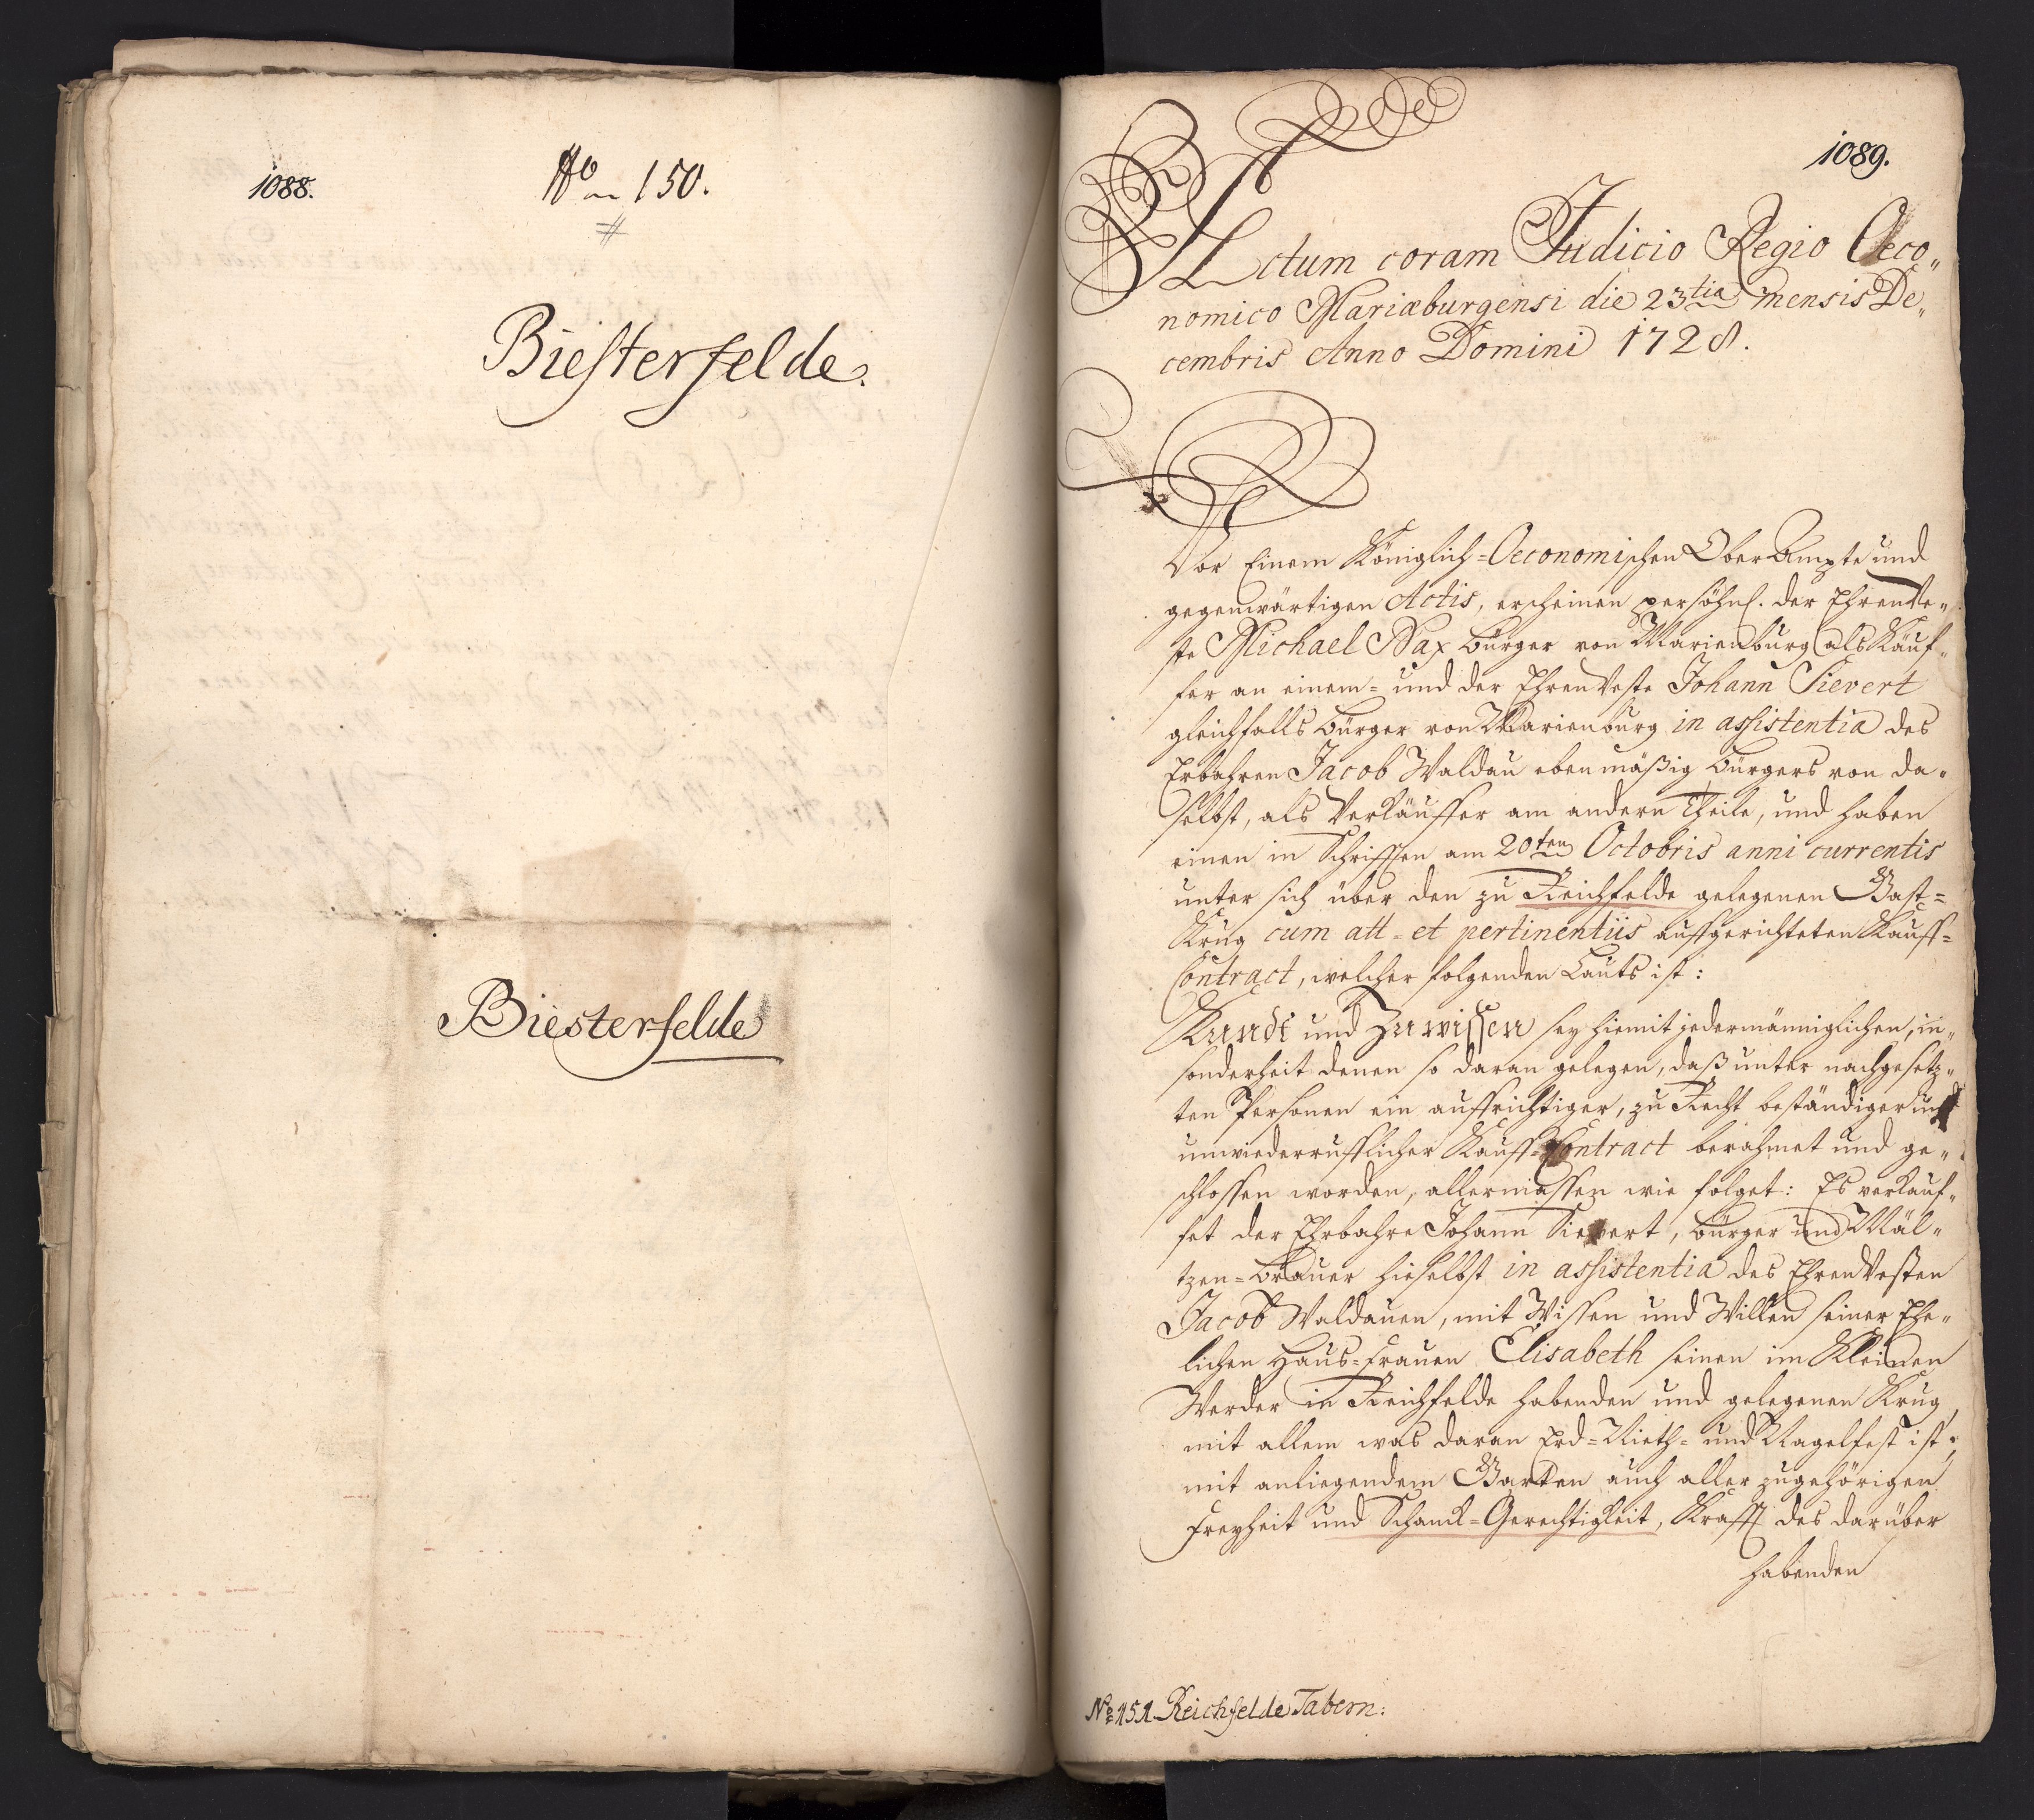 1088.
No 150.
#
Biesterfelde.
Biesterfelde
1089.
Actum coram Judicio Regio Oeco„
nomico Mariæburgensi die 23tia mensis De„
cembris Anno Domini 1728.
Vor Einem Königlich=Oeconomischen Ober Ampte und
gegenwärtigen Actis, erscheinen persöhnl. der EhrenVe„
ste Michael Nax Bürger von Marienburg als Käuf„
fer an einem= und der EhrenVeste Johann Sievert
gleichfalls Bürger von Marienburg in assistentia des
Erbahren Jacob Waldau ebenmäßig Bürgers von da„
selbst, als Verkäuffer am andern Theile, und haben
einen in Schrifften am 20ten Octobris anni currentis
unter sich über den zu Reichfelde gelegenen Gast=
Krug cum att= et pertinentiis auffgerichteten Kauff=
Contract, welcher folgenden Lauts ist:
Kundt und Zu wissen sey hiemit jedermänniglichen, in„
sonderheit denen so daran gelegen, daß unter nachgesetz„
ten Personen ein auffrichtiger, zu Recht beständiger und
unwiederrufflicher Kauff=Contract berahmet und ge„
schlossen worden, allermassen wie folget: Es verkauf„
fet der Ehrbahre Johann Sievert, Bürger und Mäl„
tzen=Brauer hieselbst in assistentia des EhrenVesten
Jacob Waldauen, mit Wissen und Willen seiner Ehe„
lichen Haus=Frauen Elisabeth seinen im Kleinen
Werder in Reichfelde habenden und gelegenen Krug,
mit allem was daran Erd=Nieth= und Nagelfest ist,
mit anliegendem Garten auch aller zugehörigen
Freyheit und Schanck=Gerechtigkeit, Krafft des darüber
habenden
No 151. Reichfelde Tabern: